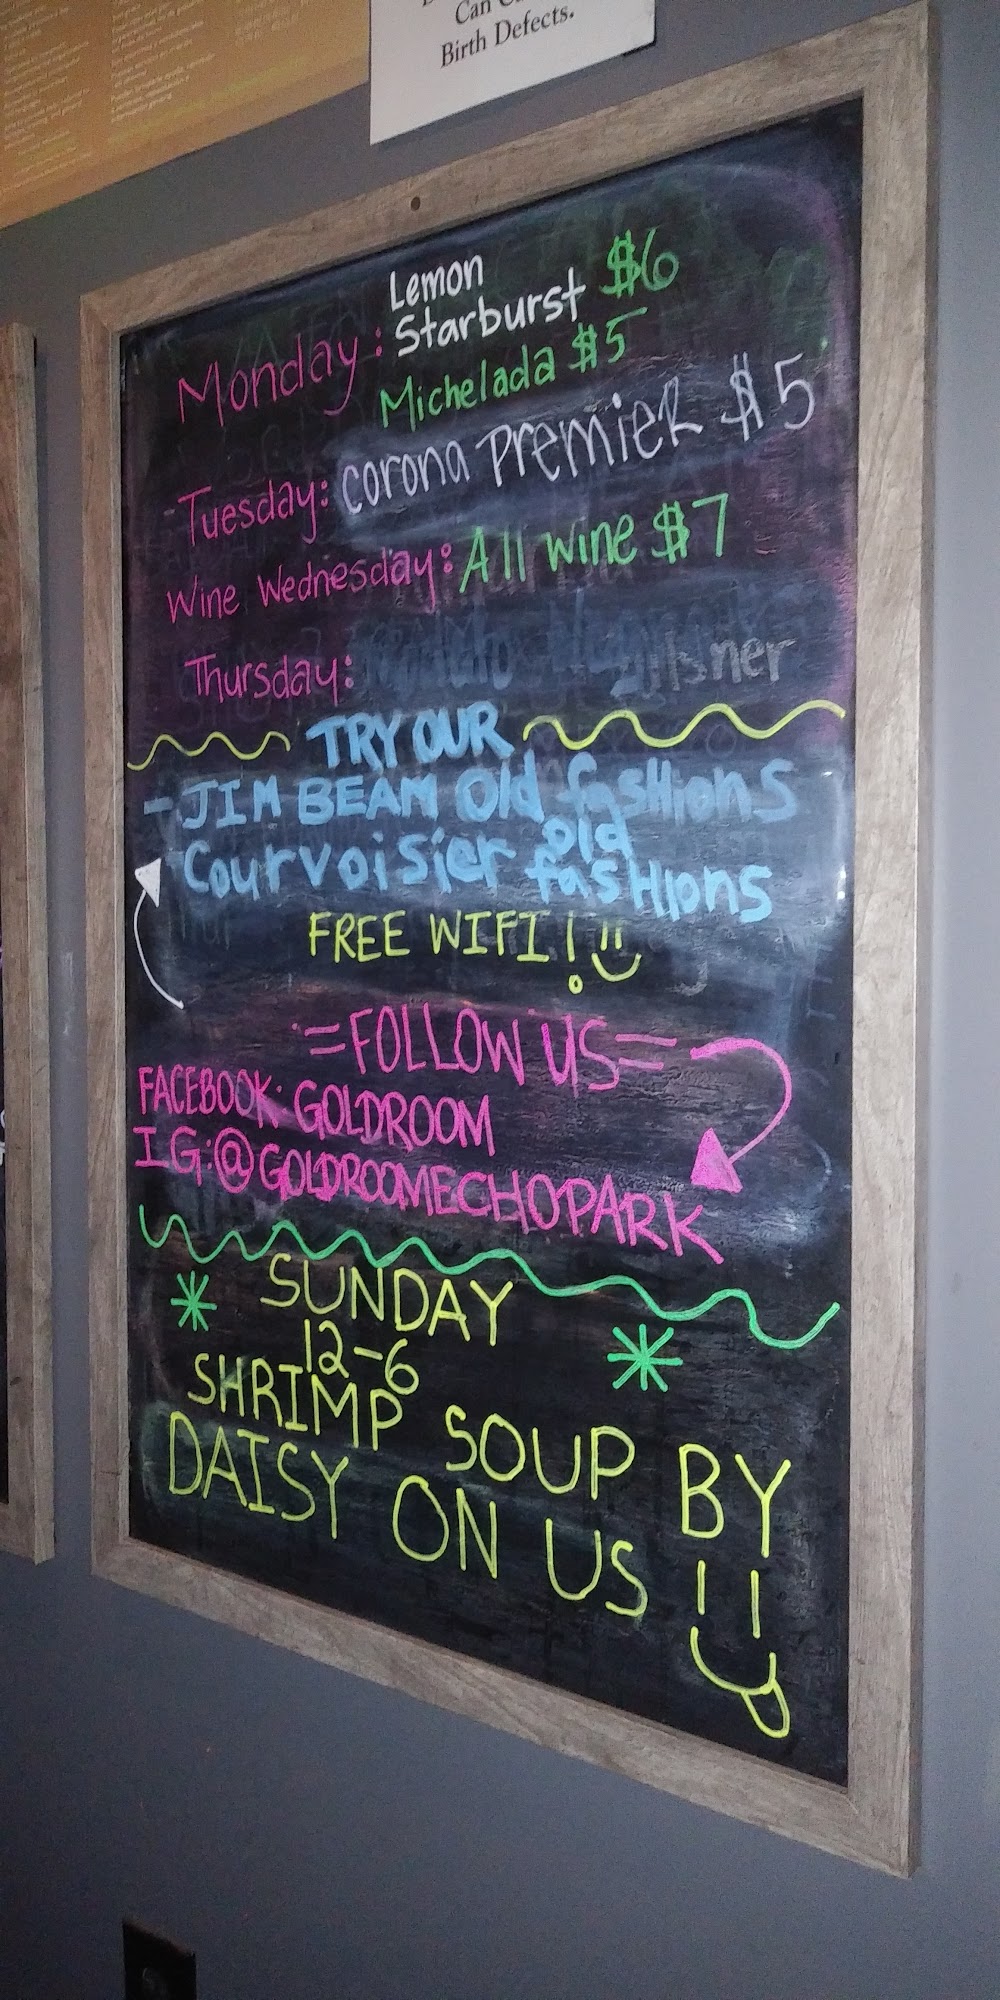 Can
Birth Defects.
Lemon
Monday: Starburst $6
Michelada $5
Tuesday: Corona Premier $5
Wine Wednesday: All wine $7
Thursday:
TRY OUR
- JIM BEAM Old fasHions
Courvoisier old fasHions
FREE WIFI!
=FOLLOW US=
FACEBOOK: GOLDROOM
IG:@GOLDROOMECHOPARK
SUNDAY
12-6
SHRIMP SOUP BY
DAISY ON US